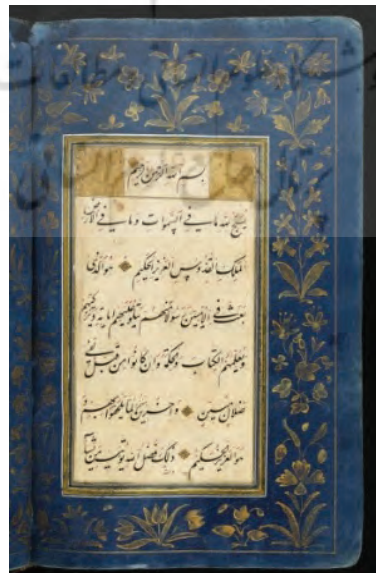 بسم الله الرحمن الرحيم
يسبح لله ما في السموات و ما في الارض
الملك القدوس العزيز الحكيم هو الذي
بعث في الاميين رسولا منهم يتلو عليهم اياته و يزكيهم
و يعلمهم الكتاب و الحكمة و ان كانوا من قبل لفي
ضلال مبين و آخرين منهم لما يلحقوا بهم و
هو العزيز الحكيم ذلك فضل الله يؤتيه من يشاء